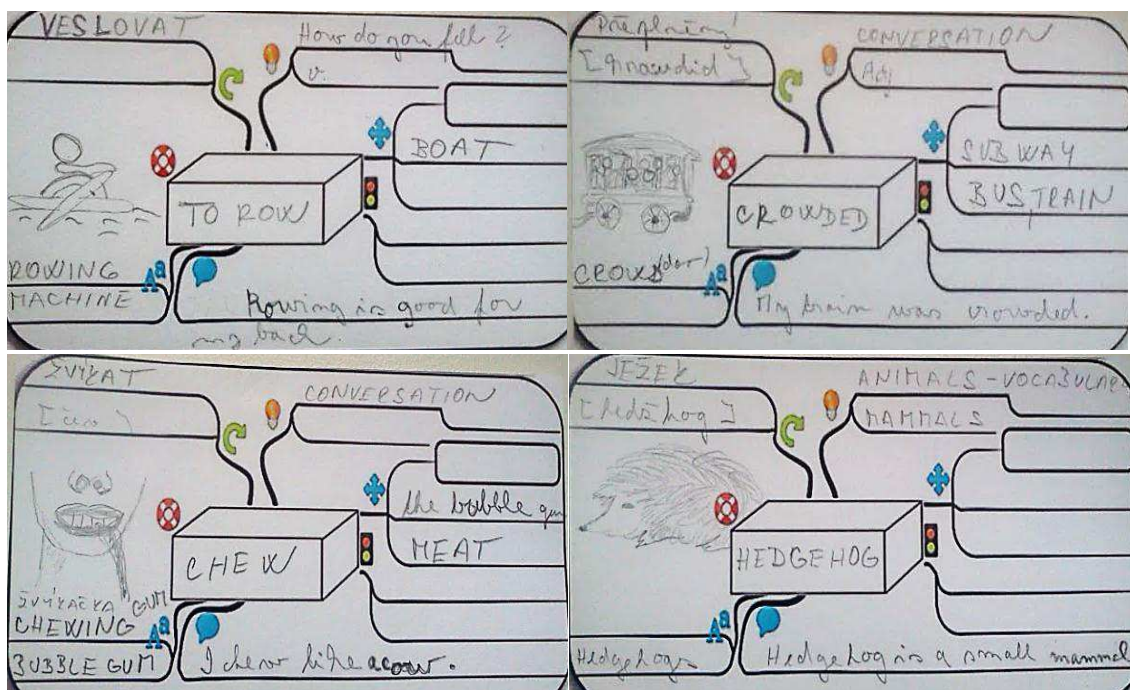 VESLOVAT
How do you fill?
v.
BOAT
TO ROW
ROWING
MACHINE
Rowing is good for
my back.
CONVERSATION
Adj
SUBWAY
BUS, TRAIN
CROWDED
My train was crowded.
ŽVÝKAT
CONVERSATION
the bubble gum
MEAT
CHEW
ŽVÝKAČKA GUM
CHEWING
BUBBLE GUM
I chew like a cow.
JEŽEK
[hedžhog]
ANIMALS - VOCABULARY
MAMMALS
HEDGEHOG
Hedgehogs
Hedgehog is a small mammal